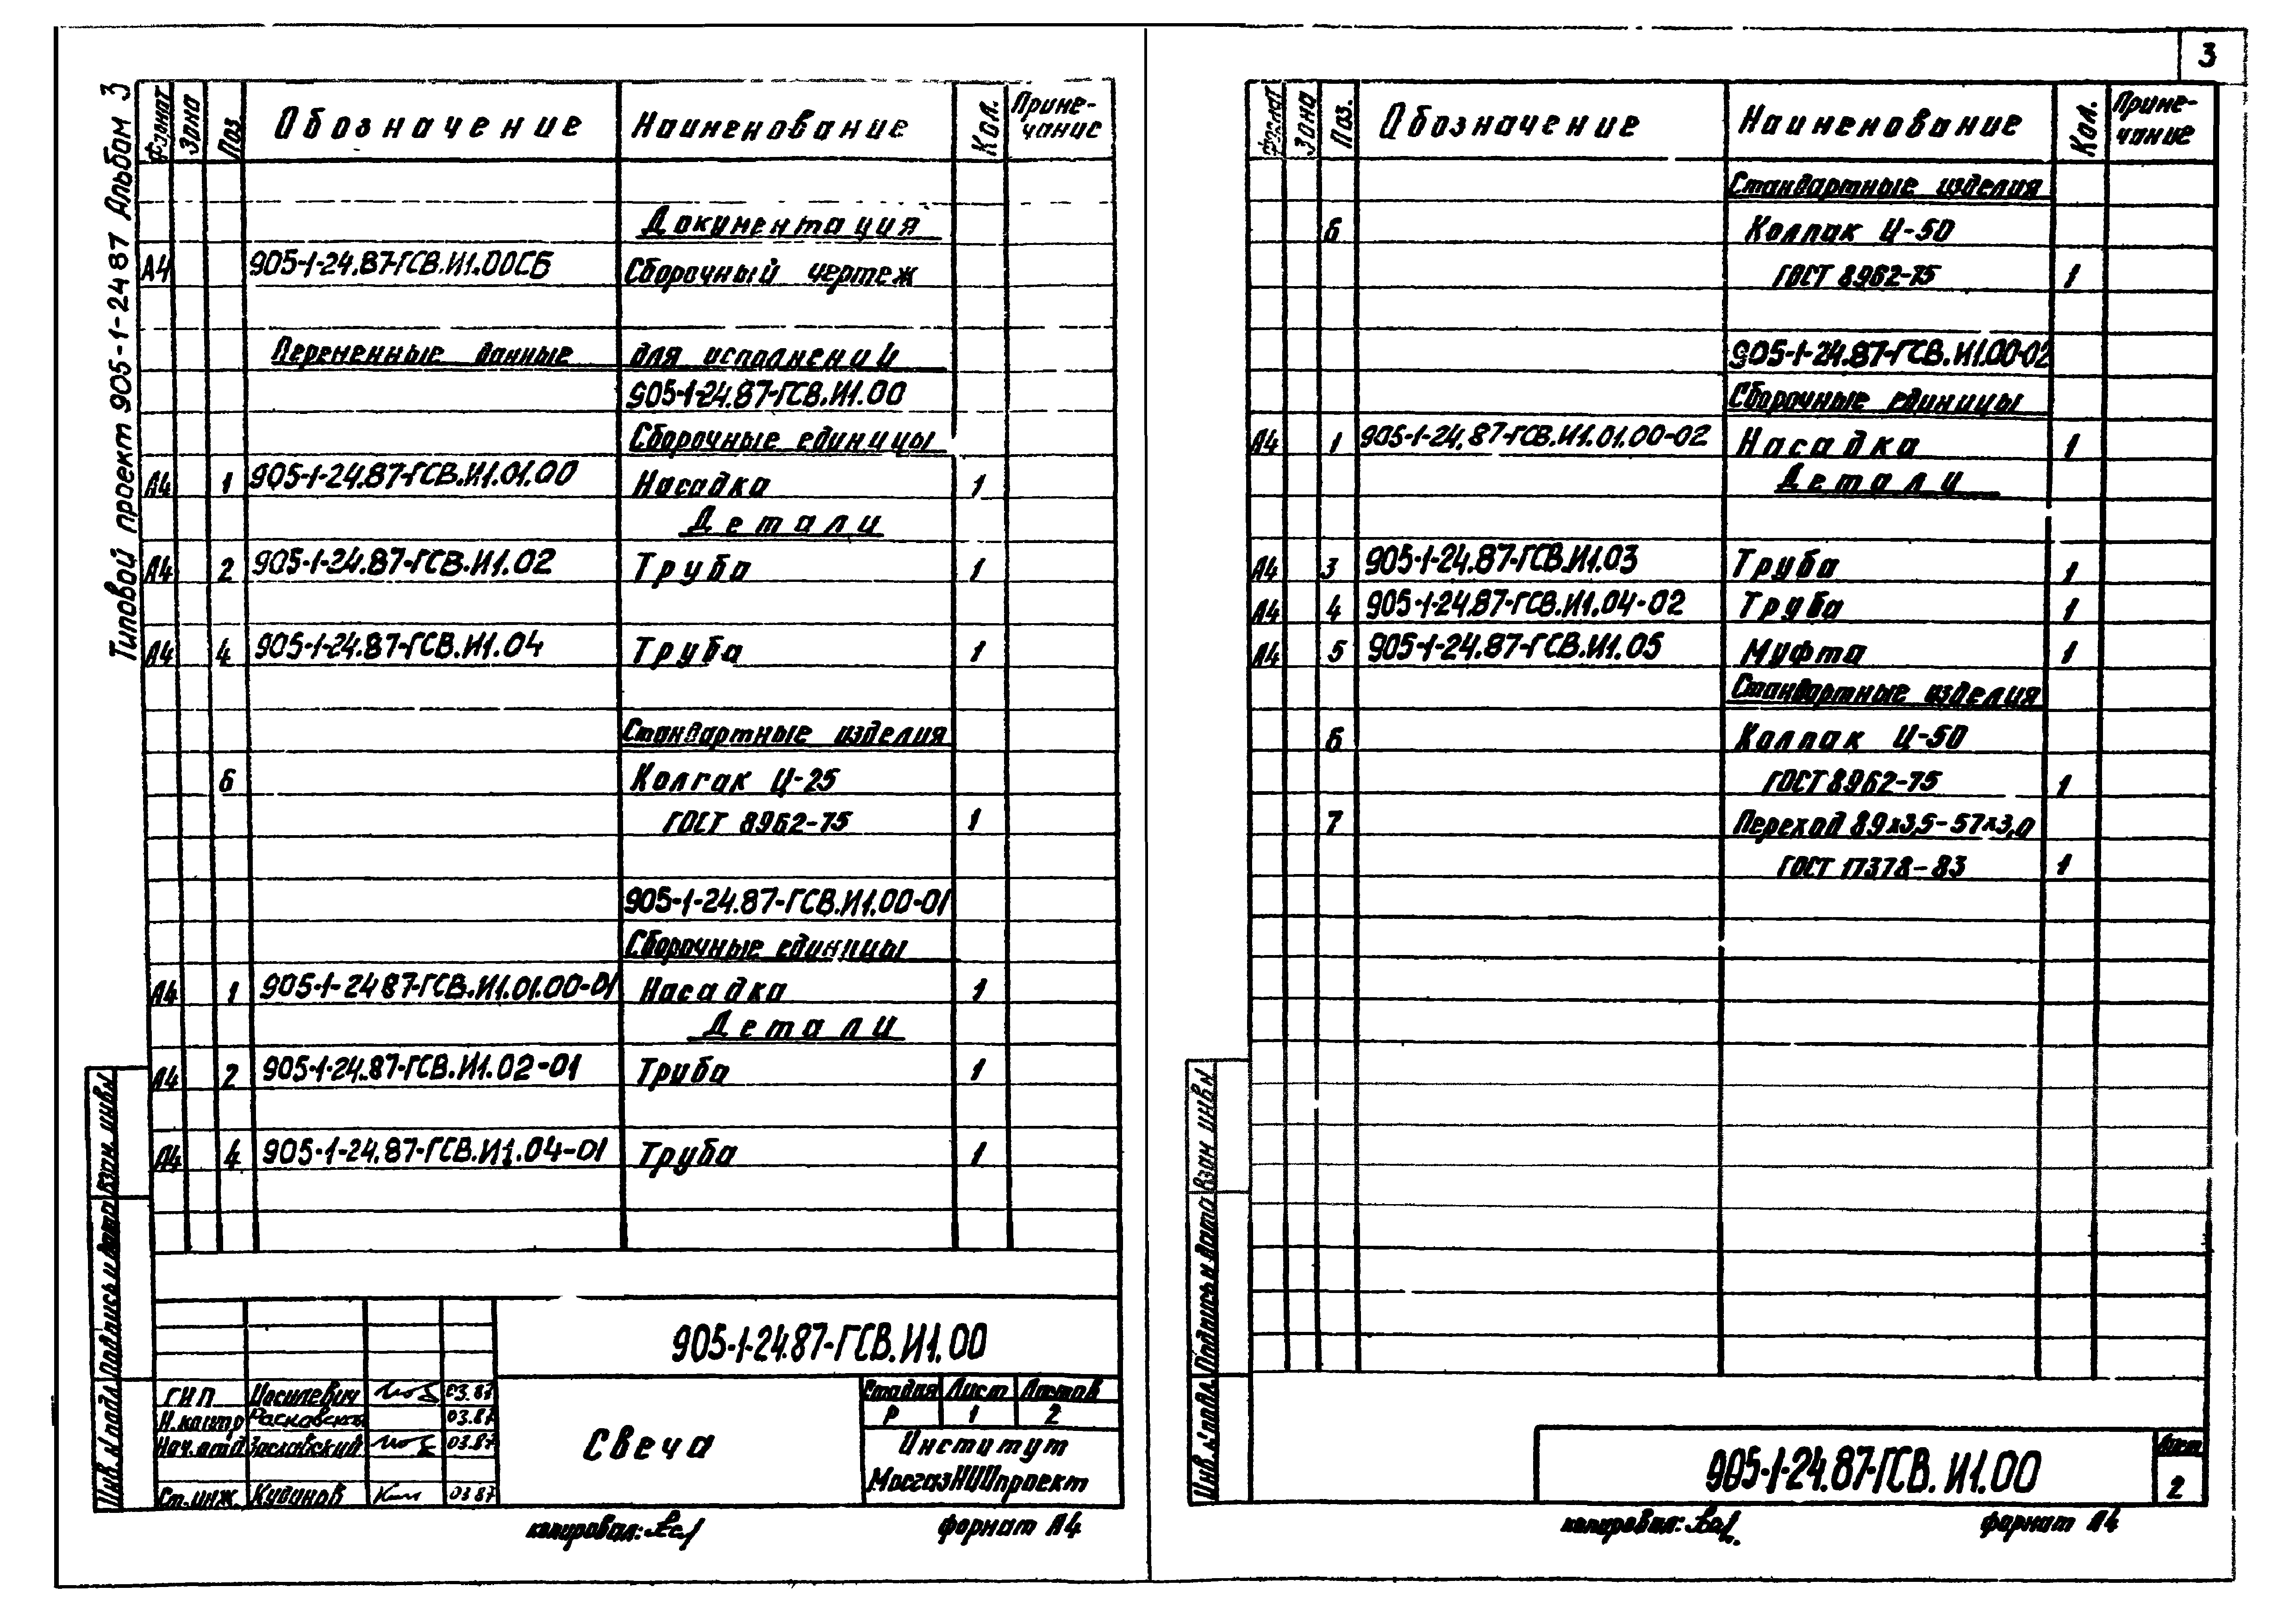 3
Типовой проект 905-1-24 87 Альбом 3
Формат Зона Поз. Обозначение Наименование Кол. Примечание
Документация
А4 905-1-24.87-ГСВ.И1.00СБ Сборочный чертеж
Переменные данные для исполнений
905-1-24.87-ГСВ.И1.00
Сборочные единицы
А4 1 905-1-24.87-ГСВ.И1.01.00 Насадка 1
Детали
А4 2 905-1-24.87-ГСВ.И1.02 Труба 1
А4 4 905-1-24.87-ГСВ.И1.04 Труба 1
Стандартные изделия
6 Колпак Ц-25
ГОСТ 8962-75 1
905-1-24.87-ГСВ.И1.00-01
Сборочные единицы
А4 1 905-1-24 87-ГСВ.И1.01.00-01 Насадка 1
Детали
А4 2 905-1-24.87-ГСВ.И1.02-01 Труба 1
А4 4 905-1-24.87-ГСВ.И1.04-01 Труба 1
Взам. инв.№
Подпись и дата
Инв.№ подл
905-1-24.87-ГСВ.И1.00
ГИП 03.87
Н.контр 03.87
Нач.отд Заславский 03.87
Ст.инж. Кудинов 03 87
Свеча
Стадия Лист Листов
Р 1 2
Институт
МосгазНИИпроект
копировал:
формат А4
Формат Зона Поз. Обозначение Наименование Кол. Примечание
Стандартные изделия
6 Колпак Ц-50
ГОСТ 8962-75 1
905-1-24.87-ГСВ.И1.00-02
Сборочные единицы
А4 1 905-1-24.87-ГСВ.И1.01.00-02 Насадка 1
Детали
А4 3 905-1-24.87-ГСВ.И1.03 Труба 1
А4 4 905-1-24.87-ГСВ.И1.04-02 Труба 1
А4 5 905-1-24.87-ГСВ.И1.05 Муфта 1
Стандартные изделия
6 Колпак Ц-50
ГОСТ 8962-75 1
7 Переход 89х3,5-57х3,0
ГОСТ 17378-83 1
Взам инв№
Подпись и дата
Инв.№ подл.
905-1-24.87-ГСВ.И1.00
Лист
2
копировал:
формат А4